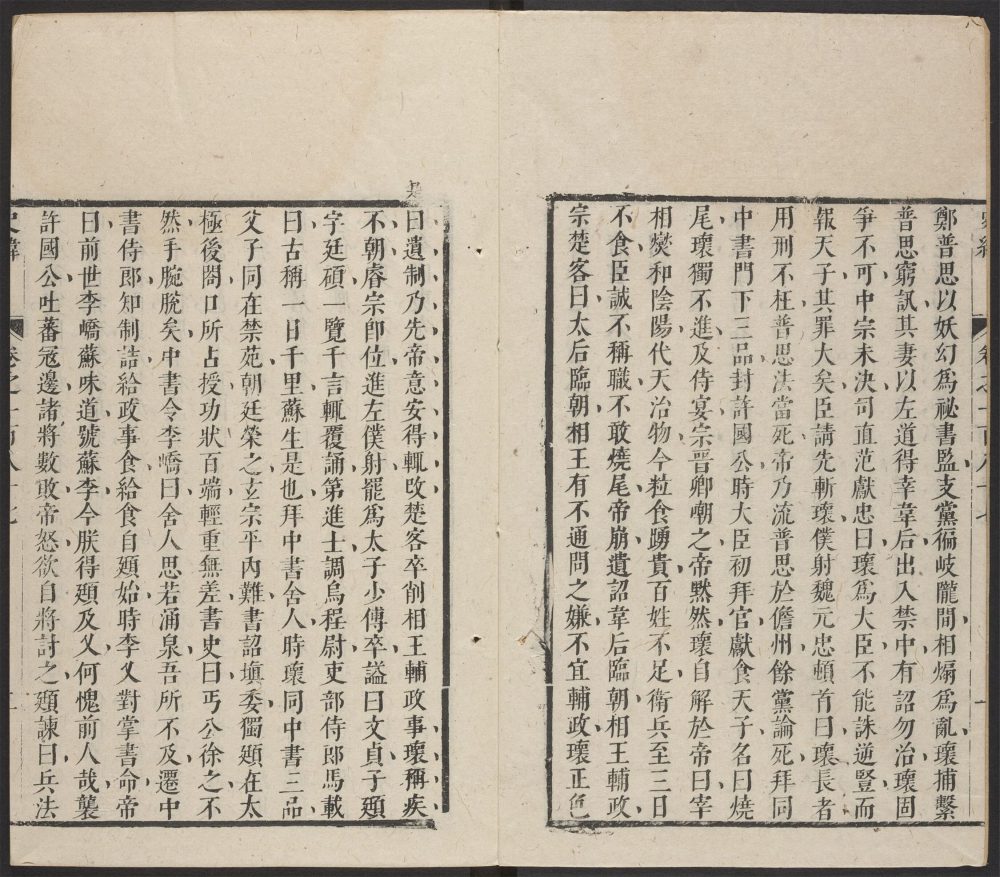 鄭普思以妖幻爲祕書監支黨徧岐隴間相煽爲亂瓌捕繫
普思窮訊其妻以左道得幸韋后出入禁中有詔勿治瓌固
爭不可中宗未決司直范獻忠曰瓌爲大臣不能誅逆豎而
報天子其罪大矣臣請先斬瓌僕射魏元忠頓首曰瓌長者
用刑不枉普思法當死帝乃流普思於儋州餘黨論死拜同
中書門下三品封許國公時大臣初拜官獻食天子名曰燒
尾瓌獨不進及侍宴宗晉卿嘲之帝黙然瓌自解於帝曰宰
相燮和陰陽代天治物今粒食踴貴百姓不足衛兵至三日
不食臣誠不稱職不敢燒尾帝崩遺詔韋后臨朝相王輔政
宗楚客曰太后臨朝相王有不通問之嫌不宜輔政瓌正色
曰遺制乃先帝意安得輒改楚客卒削相王輔政事瓌稱疾
不朝睿宗卽位進左僕射罷爲太子少傅卒謚曰文貞子頲
字廷碩一覽千言輒覆誦第進士調烏程尉吏部侍郎馬載
曰古稱一日千里蘇生是也拜中書舍人時瓌同中書三品
父子同在禁苑朝廷榮之玄宗平內難書詔塡委獨頲在太
極後閤口所占授功狀百端輕重無差書史曰丐公徐之不
然手腕脫矣中書令李嶠曰舍人思若涌泉吾所不及遷中
書侍郎知制誥給政事食給食自頲始時李乂對掌書命帝
曰前世李嶠蘇味道號蘇李今朕得頲及乂何愧前人哉襲
許國公吐蕃寇邊諸將數敗帝怒欲自將討之頲諫曰兵法
史緯
卷之一百八十七